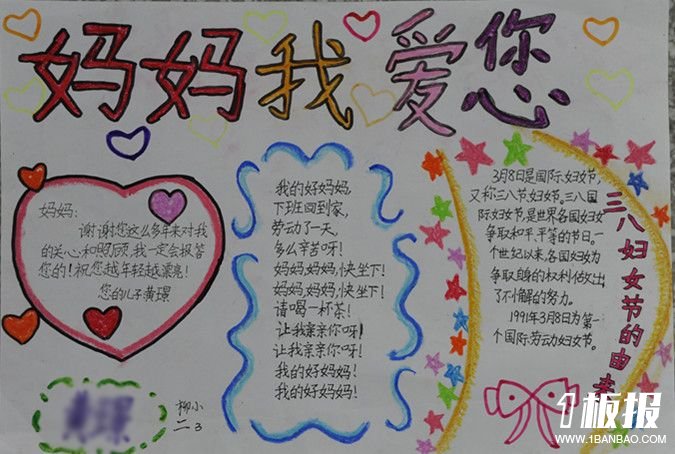 妈妈我爱您
妈妈:
谢谢您这么多年来对我
的关心和照顾,我一定会报答
您的!祝您越年轻越漂亮!
您的儿子黄璟
柳小
二3
我的好妈妈,
下班回到家,
劳动了一天,
多么辛苦呀!
妈妈,妈妈,快坐下!
妈妈,妈妈,快坐下!
请喝一杯茶!
让我亲亲你呀!
让我亲亲你呀!
我的好妈妈!
我的好妈妈!
3月8日是国际妇女节,
又称三八节,妇女节。三八国
际妇女节,是世界各国妇女
争取和平、平等的节日。一
个世纪以来,各国妇女为
争取自身的权利做出
了不懈的努力。
1991年3月8日为第一
个国际劳动妇女节。
三八妇女节的由来
板报
WWW.1BANBAO.COM